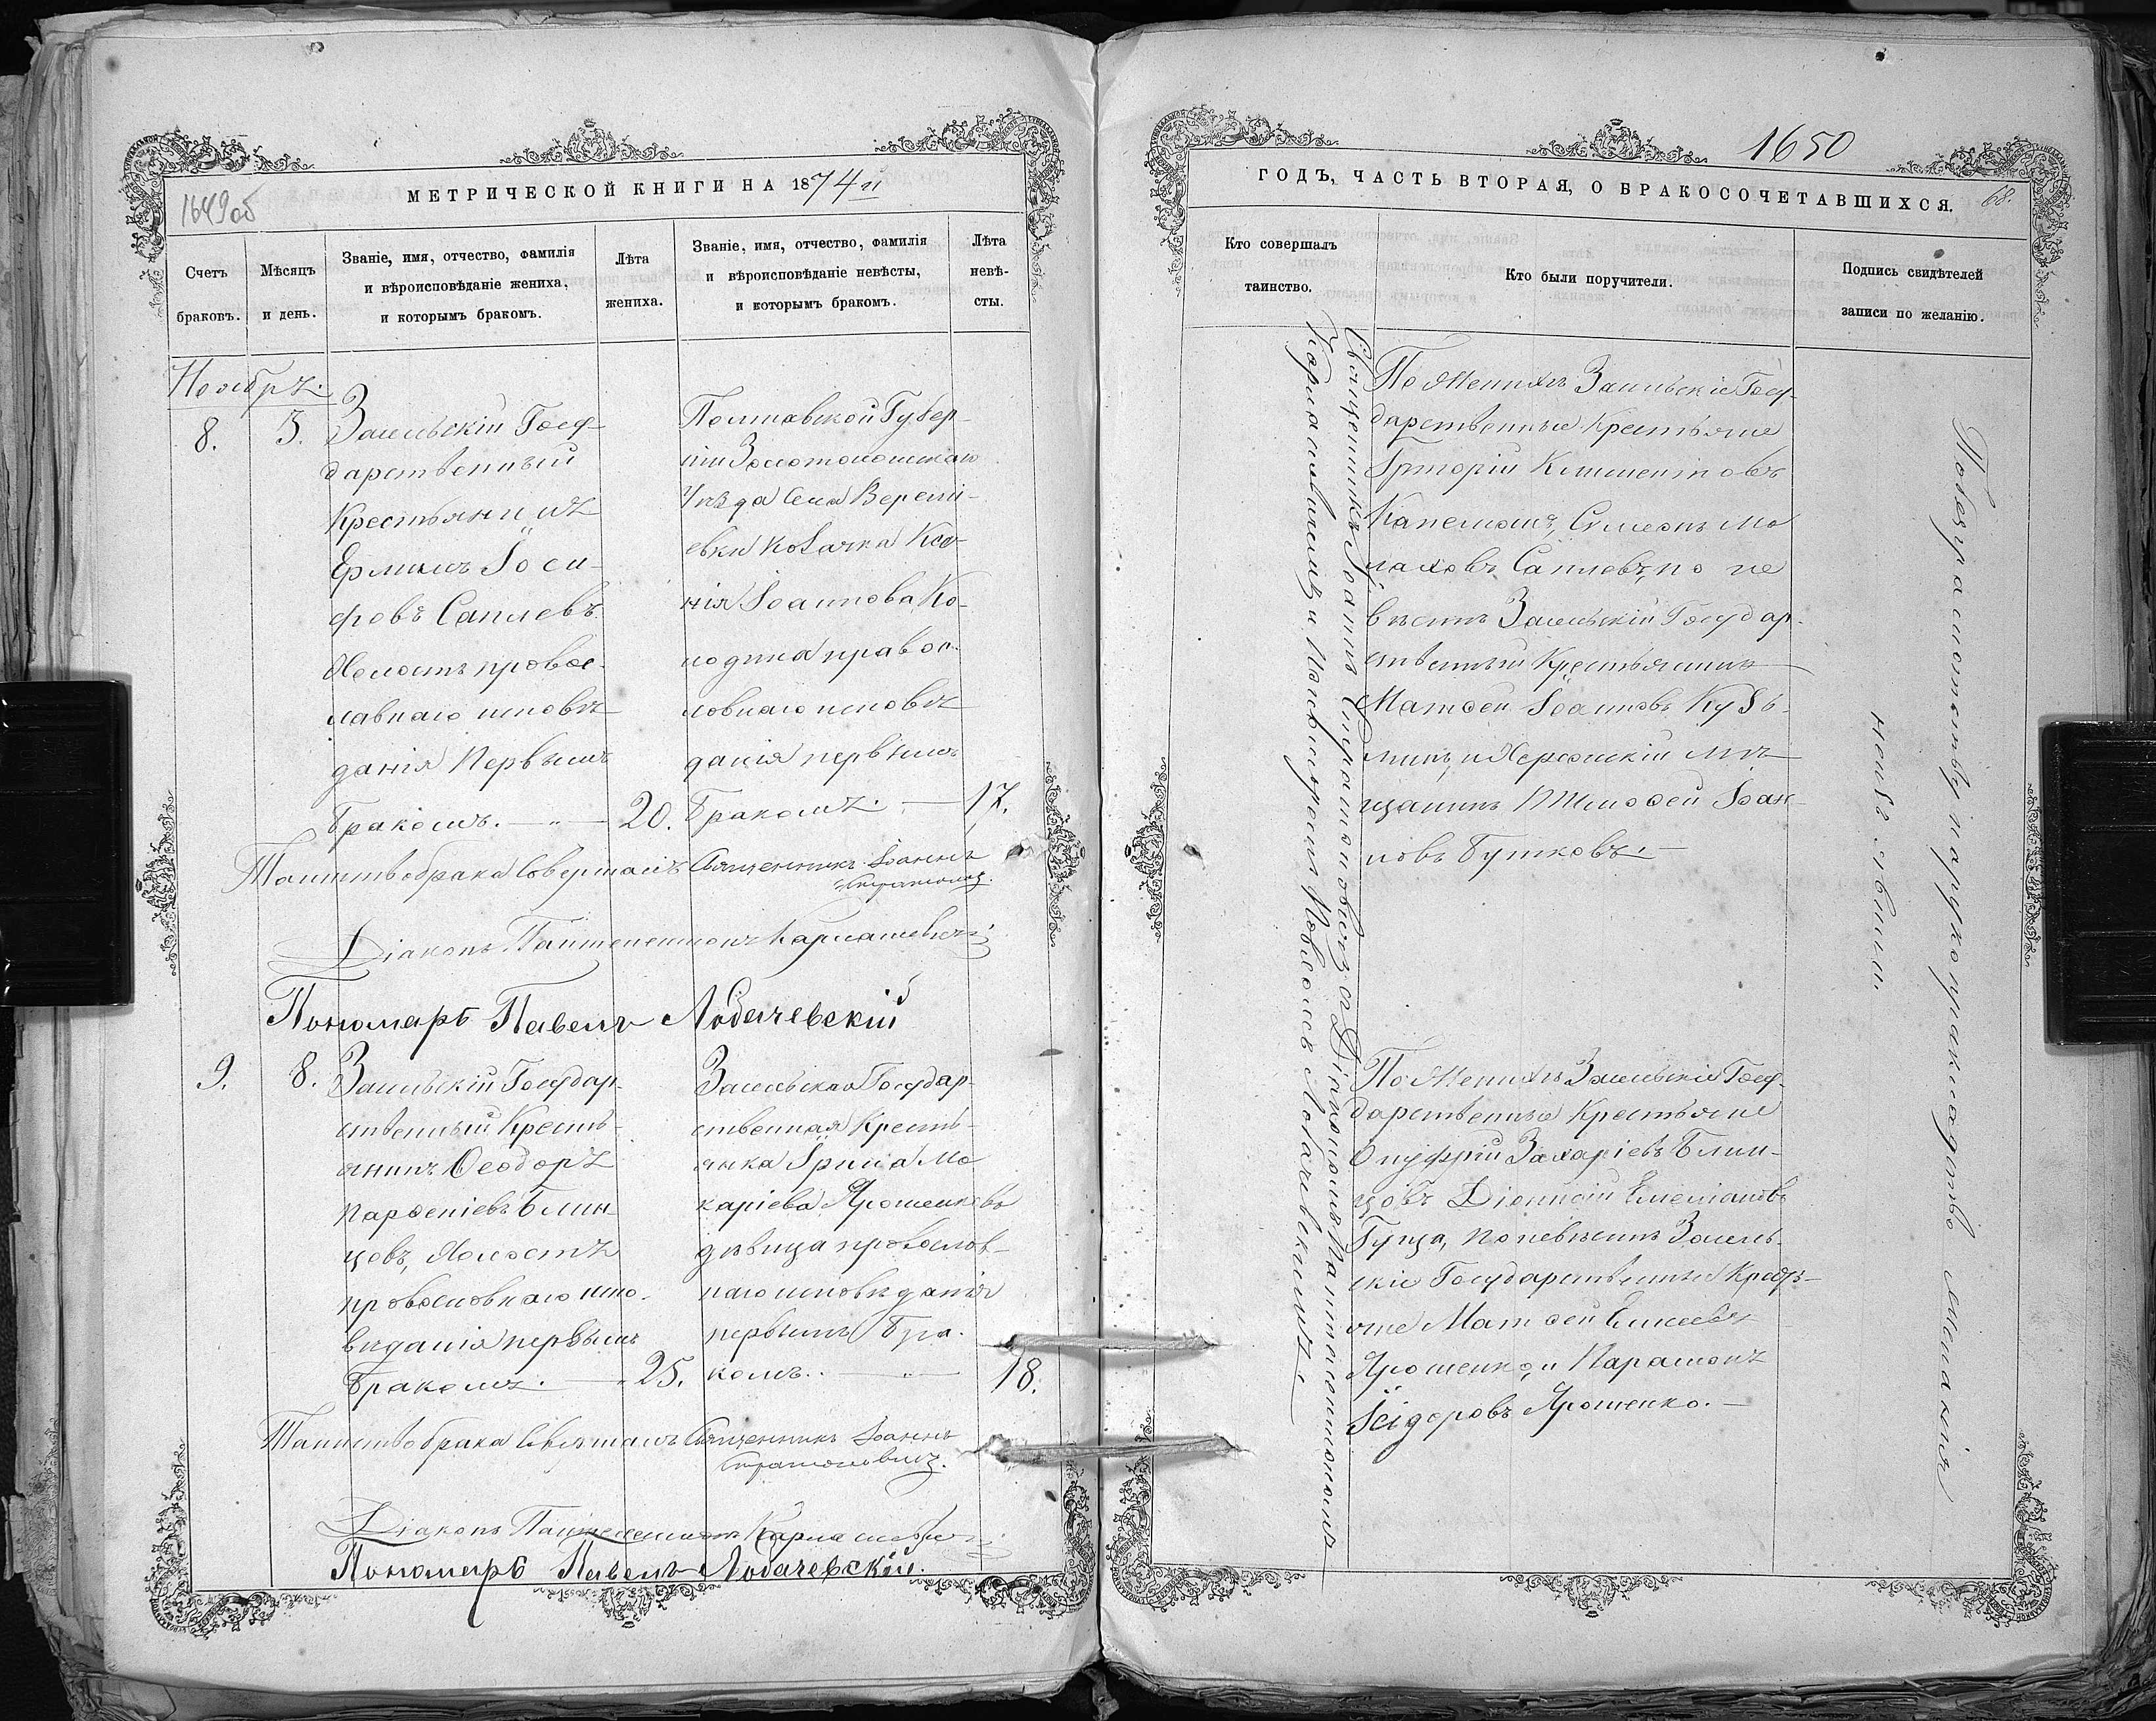 МЕТРИЧЕСКОЙ КНИГИ НА 1874й
1649об
Счетъ браковъ.
Мѣсяцъ и день.
Званіе, имя, отчество, фамилія
и вѣроисповѣданіе жениха,
и которымъ бракомъ.
Лѣта
жениха.
Званіе, имя, отчество, фамилія
и вѣроисповѣданіе невѣсты,
и которымъ бракомъ.
Лѣта
невѣ-
сты.
Ноябрь.
8. 3.
Госу-
дарственный
Крестьянинъ
Іоси-
фовъ Саплевъ
Холостъ право-
славнаго исповѣ
данія Первымъ
бракомъ. — 20.
Полтавской Губер-
ніи Золотоношскаго
Уѣзда Села Вереми-
евки козачка Ксе-
нія Іоаннова Ко-
лодина правос
лавнаго исповѣ
данія первымъ
бракомъ. — 17.
Таинство брака Совершалъ Священникъ Іоаннъ
Діаконъ Пантелеимонъ
Пономарь Павелъ Лобачевскій
9. 8.
Государ-
ственный Кресть-
янинъ Ѳеодоръ
Парѳеніевъ Блин-
цовъ, Холостъ
православнаго испо-
вѣданія первымъ
бракомъ. — 25.
Государ-
ственная Кресть-
янка Ірина Ма
каріева Ярошенковъ
дѣвица православ-
наго исповѣданія
первымъ бра-
комъ. — 18.
Таинство брака Совершалъ Священникъ Іоаннъ
Діаконъ Пантелеимонъ
Пономарь Павелъ Лобачевскій.
1650
ГОДЪ, ЧАСТЬ ВТОРАЯ, О БРАКОСОЧЕТАВШИХСЯ.
68.
Кто совершалъ
таинство.
Кто были поручители.
Подпись свидѣтелей
записи по желанію.
Священникъ Іоаннъ съ Діакономъ Пантелеимономъ
и Пономаремъ Павломъ Лобачевскимъ.
По Женихѣ Госу-
дарственные Крестьяне
Григорій Климентовъ
Симеонъ Ма
лаховъ Саплевъ, по не
вѣстѣ Государ-
ственный Крестьянинъ
Матѳей Іоанновъ Кузь-
минъ, и Херсонскій мѣ-
щанинъ Тимоѳей Іоан-
новъ Бутковъ. —
По Женихѣ Госу-
дарственные Крестьяне
Онуфрій Захаріевъ Блин-
цовъ Діонисій Емеліановъ
Гуща, По невѣстѣ
скіе Государственные Кресть-
яне Матѳей Елисеевъ
Ярошенко, и Парамонъ
Ісідоровъ Ярошенко. —
По безграмотству и рукоприкладство желанія
не изъявили.